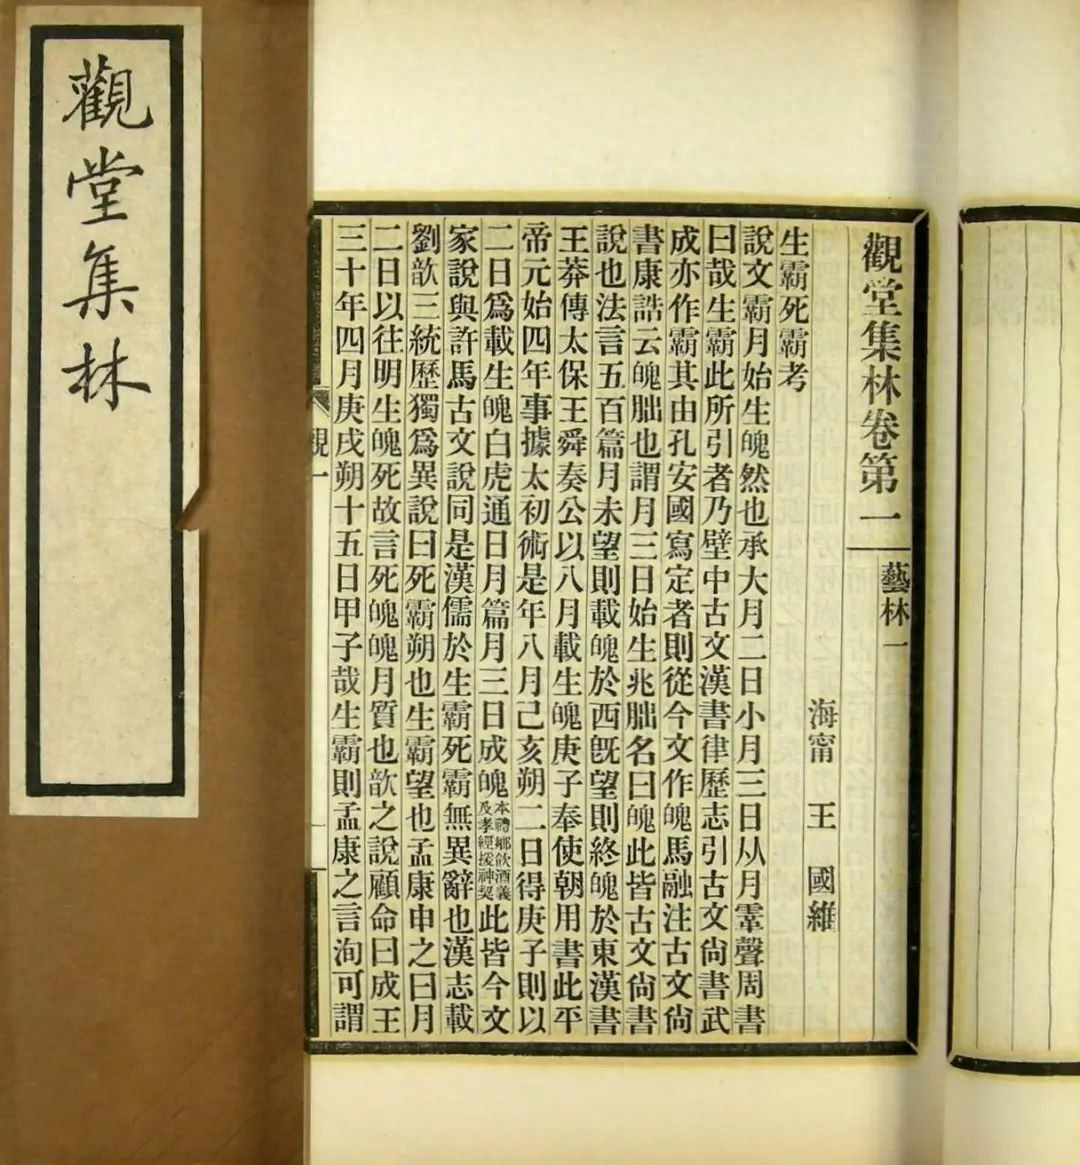 觀堂集林
觀堂集林卷第一 藝林一
海甯 王 國維
生霸死霸考
說文霸月始生魄然也承大月二日小月三日从月䨣聲周書
曰哉生霸此所引者乃壁中古文漢書律歷志引古文尙書武
成亦作霸其由孔安國寫定者則從今文作魄馬融注古文尙
書康誥云魄朏也謂月三日始生兆朏名曰魄此皆古文尙書
說也法言五百篇月未望則載魄於西旣望則終魄於東漢書
王莽傳太保王舜奏公以八月載生魄庚子奉使朝用書此平
帝元始四年事據太初術是年八月己亥朔二日得庚子則以
二日爲載生魄白虎通日月篇月三日成魄本禮鄉飮酒義及孝經援神契此皆今文
家說與許馬古文說同是漢儒於生霸死霸無異辭也漢志載
劉歆三統歷獨爲異說曰死霸朔也生霸望也孟康申之曰月
二日以往明生魄死故言死魄魄月質也歆之說顧命曰成王
三十年四月庚戌朔十五日甲子哉生霸則孟康之言洵可謂
觀一